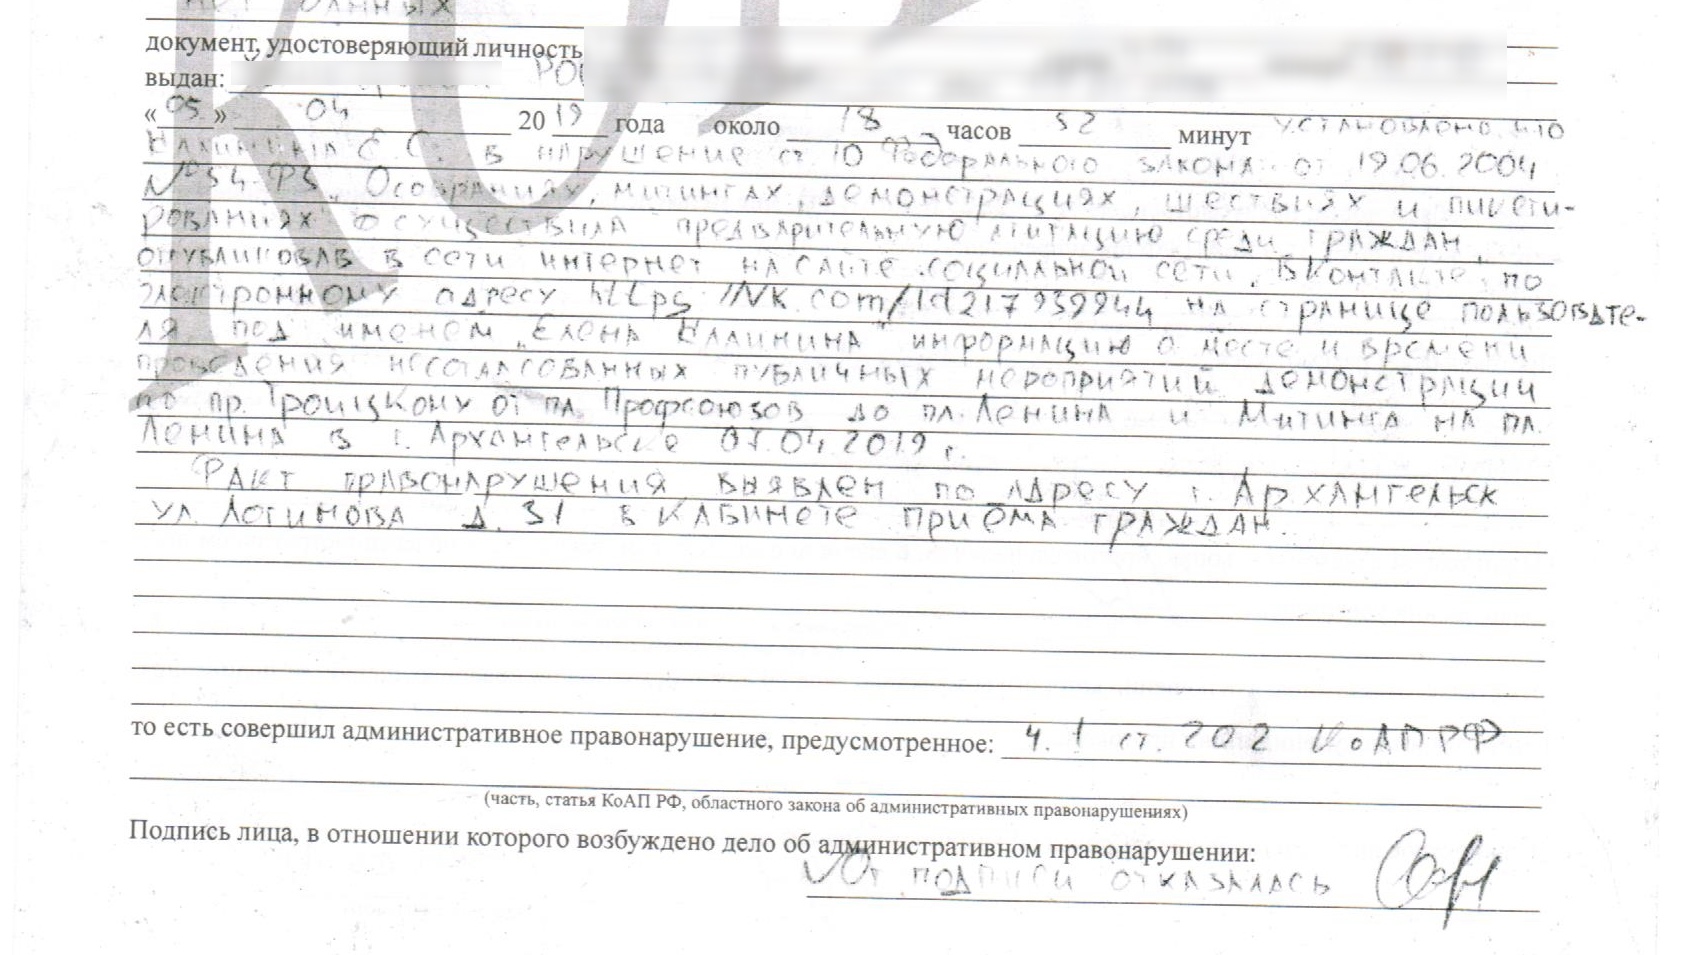 нет данных
документ, удостоверяющий личность
выдан: РО
«05» 04 2019 года около 18 часов 52 минут установлено что
Калинина Е.С. в нарушение ст. 10 Федерального закона от 19.06.2004
№54-ФЗ „О собраниях, митингах, демонстрациях, шествиях и пикети-
рованиях" осуществила предварительную агитацию среди граждан,
опубликовав в сети интернет на сайте социальной сети „ВКонтакте" по
электронному адресу https://vk.com/id217939944 на странице пользовате-
ля под именем „Елена Калинина" информацию о месте и времени
проведения несогласованных публичных мероприятий демонстрации
по пр. Троицкому от пл. Профсоюзов до пл. Ленина и митинга на пл.
Ленина в г. Архангельске 07.04.2019 г.
Факт правонарушения выявлен по адресу г. Архангельск
ул. Логинова д. 31 в кабинете приёма граждан.
то есть совершил административное правонарушение, предусмотренное: ч. 1 ст. 20.2 КоАП РФ
(часть, статья КоАП РФ, областного закона об административных правонарушениях)
Подпись лица, в отношении которого возбуждено дело об административном правонарушении:
От подписи отказалась